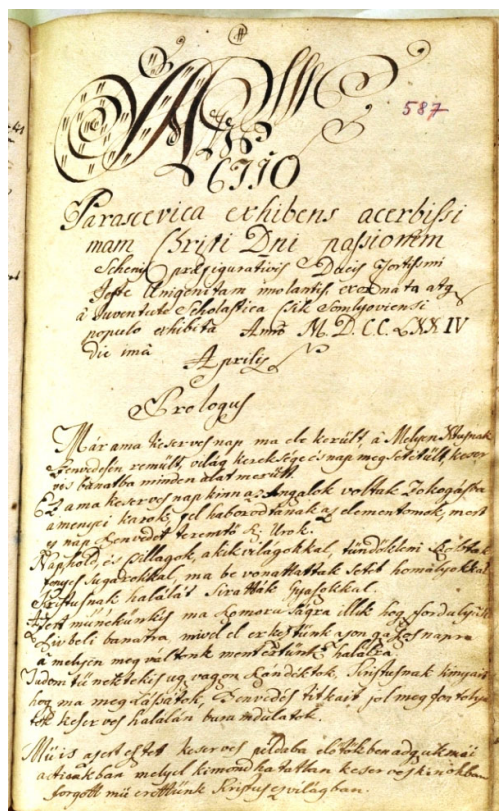 587
ACTIO
Parascevica exhibens acerbissi
mam Christi Dni passionem
Schenis præfigurativis Ducis Fortissimi
Jefte Unigenitam imolantis exornata atq
à Juventute Scholastica Csik Somlyoviensi
populo exhibita Anno M.D.CC.LXXIV
die imâ
Aprilis
Prologus
Már ama keserves nap ma ele került, à Melyen Xtusnak
Szenvedésén remült, világ kereksége és nap meg setétült, keser
vis bánatba minden álat merült.
Ez ama keserves nap kinn az Angalok voltak Zokogásba
amenyei karok, fel haborodtanak az elementomok, mert
ez nap szenvedet teremtő Ur
Naphold, és Csillagok, akik világokkal, tündökleni szoktak
fenyes sugarokkal, ma be vonattattak setéb homályokkal
Kristusnak halálát Siratták Gyásokkal.
Azert münékünkis ma szomoruságra illik hog fordulyunk
Szivbeli banatra, mivel el erkeztünk azon gyászos napra
à melyen meg váltonk mentertünk halálra.
Tudom tü nektekis ug vagon szándéktok, Kristusnak kinyait
hog ma meg Lássátok, Szenvedés titkait jol meg fontolyá
tok keserves halálán busu indulatok.
Müis azert estet keserves peldaba elötökben adgyuk mái
actionkban melyel kimondhatatlan keserves kinokban
forgott mü erettünk Kristus ez világban.